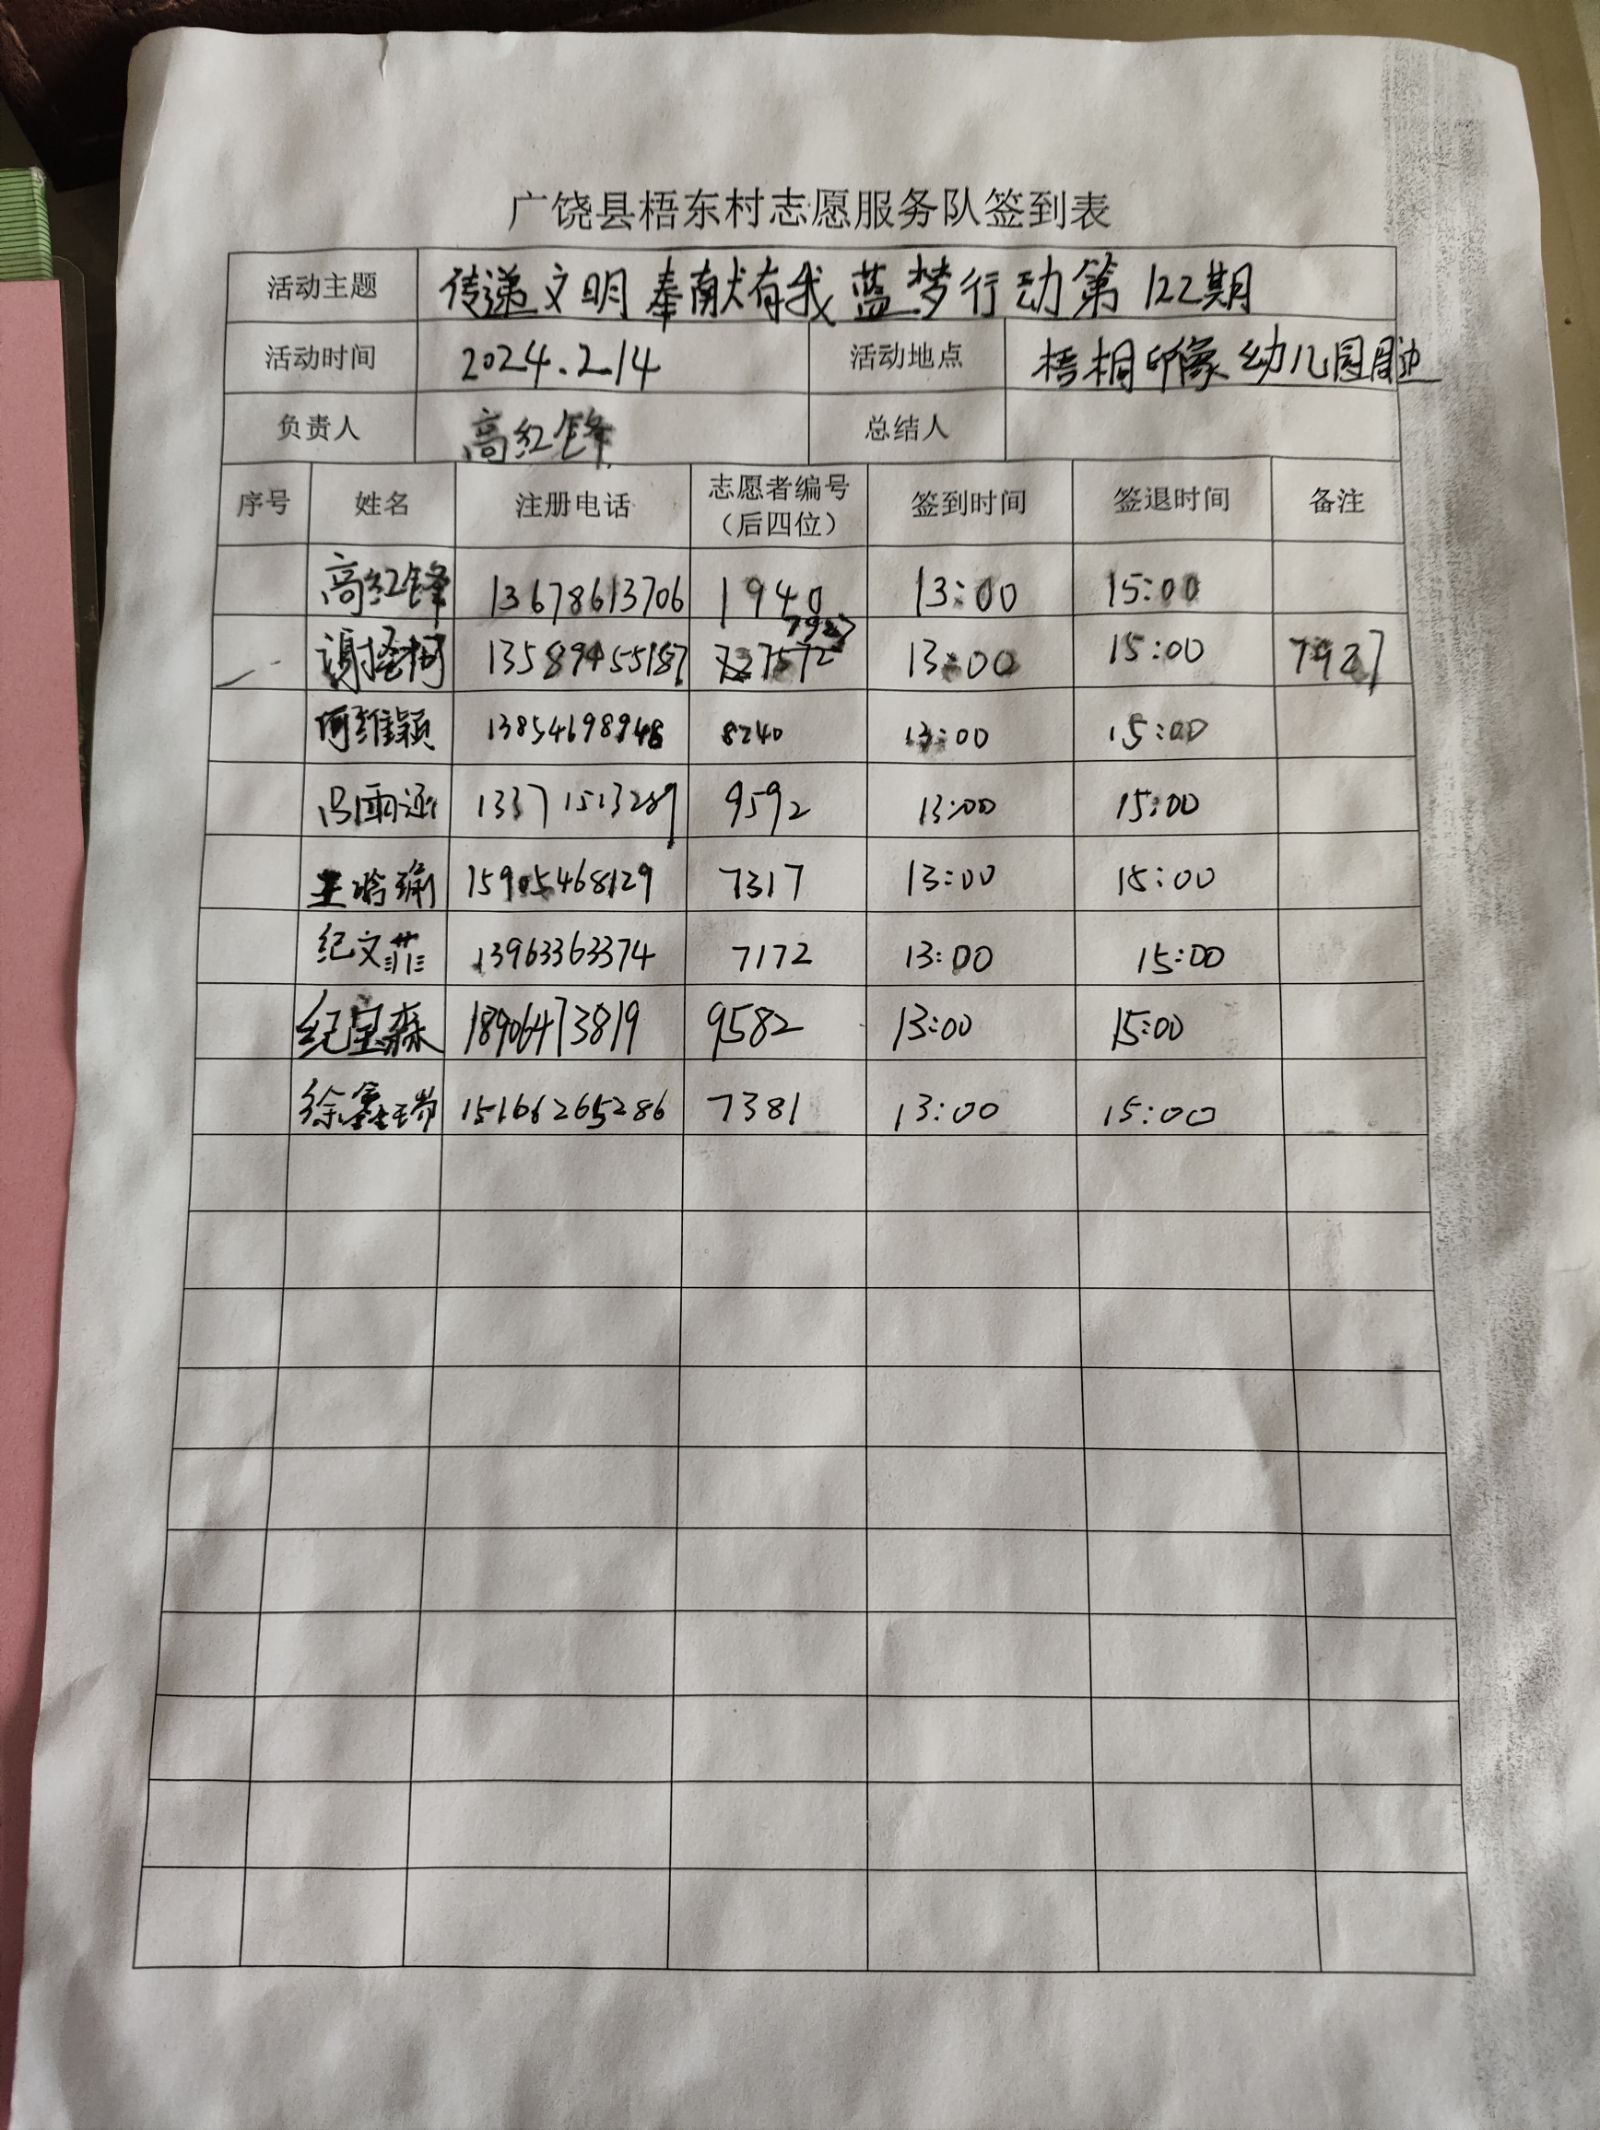 广饶县梧东村志愿服务队签到表
活动主题 传递文明 奉献有我 蓝梦行动第122期
活动时间 2024.2.14 活动地点 梧桐印象幼儿园周边
负责人 高红锋 总结人
序号 姓名 注册电话 志愿者编号（后四位） 签到时间 签退时间 备注
高红锋 13678613706 1940 13:00 15:00
谢 13589455187 7927 13:00 15:00 7927
维颖 13854698948 8240 13:00 15:00
雨涵 13371513289 9592 13:00 15:00
王 15905468129 7317 13:00 15:00
纪文菲 13963363374 7172 13:00 15:00
纪宝森 18906473819 9582 13:00 15:00
徐鑫瑞 15166265286 7381 13:00 15:00